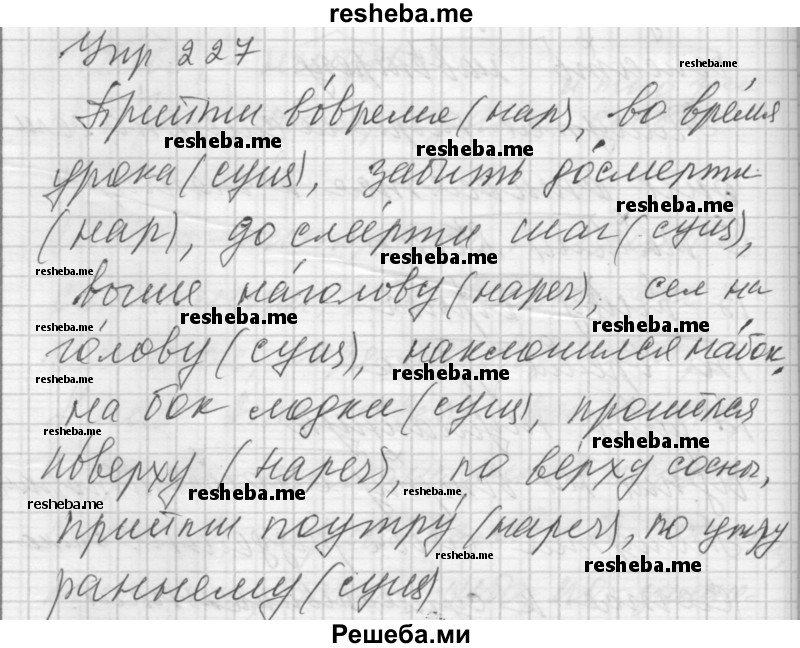 resheba.me
Упр 227
resheba.me
Прийти вовремя (нар), во время
resheba.me
resheba.me
урока (сущ), забить досмерти
resheba.me
(нар), до смерти шаг (сущ),
resheba.me
resheba.me
выше наголову (нареч), сел на
resheba.me
resheba.me
resheba.me
голову (сущ), наклонился набок,
resheba.me
resheba.me
на бок лодки (сущ), прошёлся
resheba.me
resheba.me
поверху (нареч), по верху сосны,
resheba.me
resheba.me
resheba.me
прийти поутру (нареч), по утру
resheba.me
resheba.me
раннему (сущ)
Решеба.ми